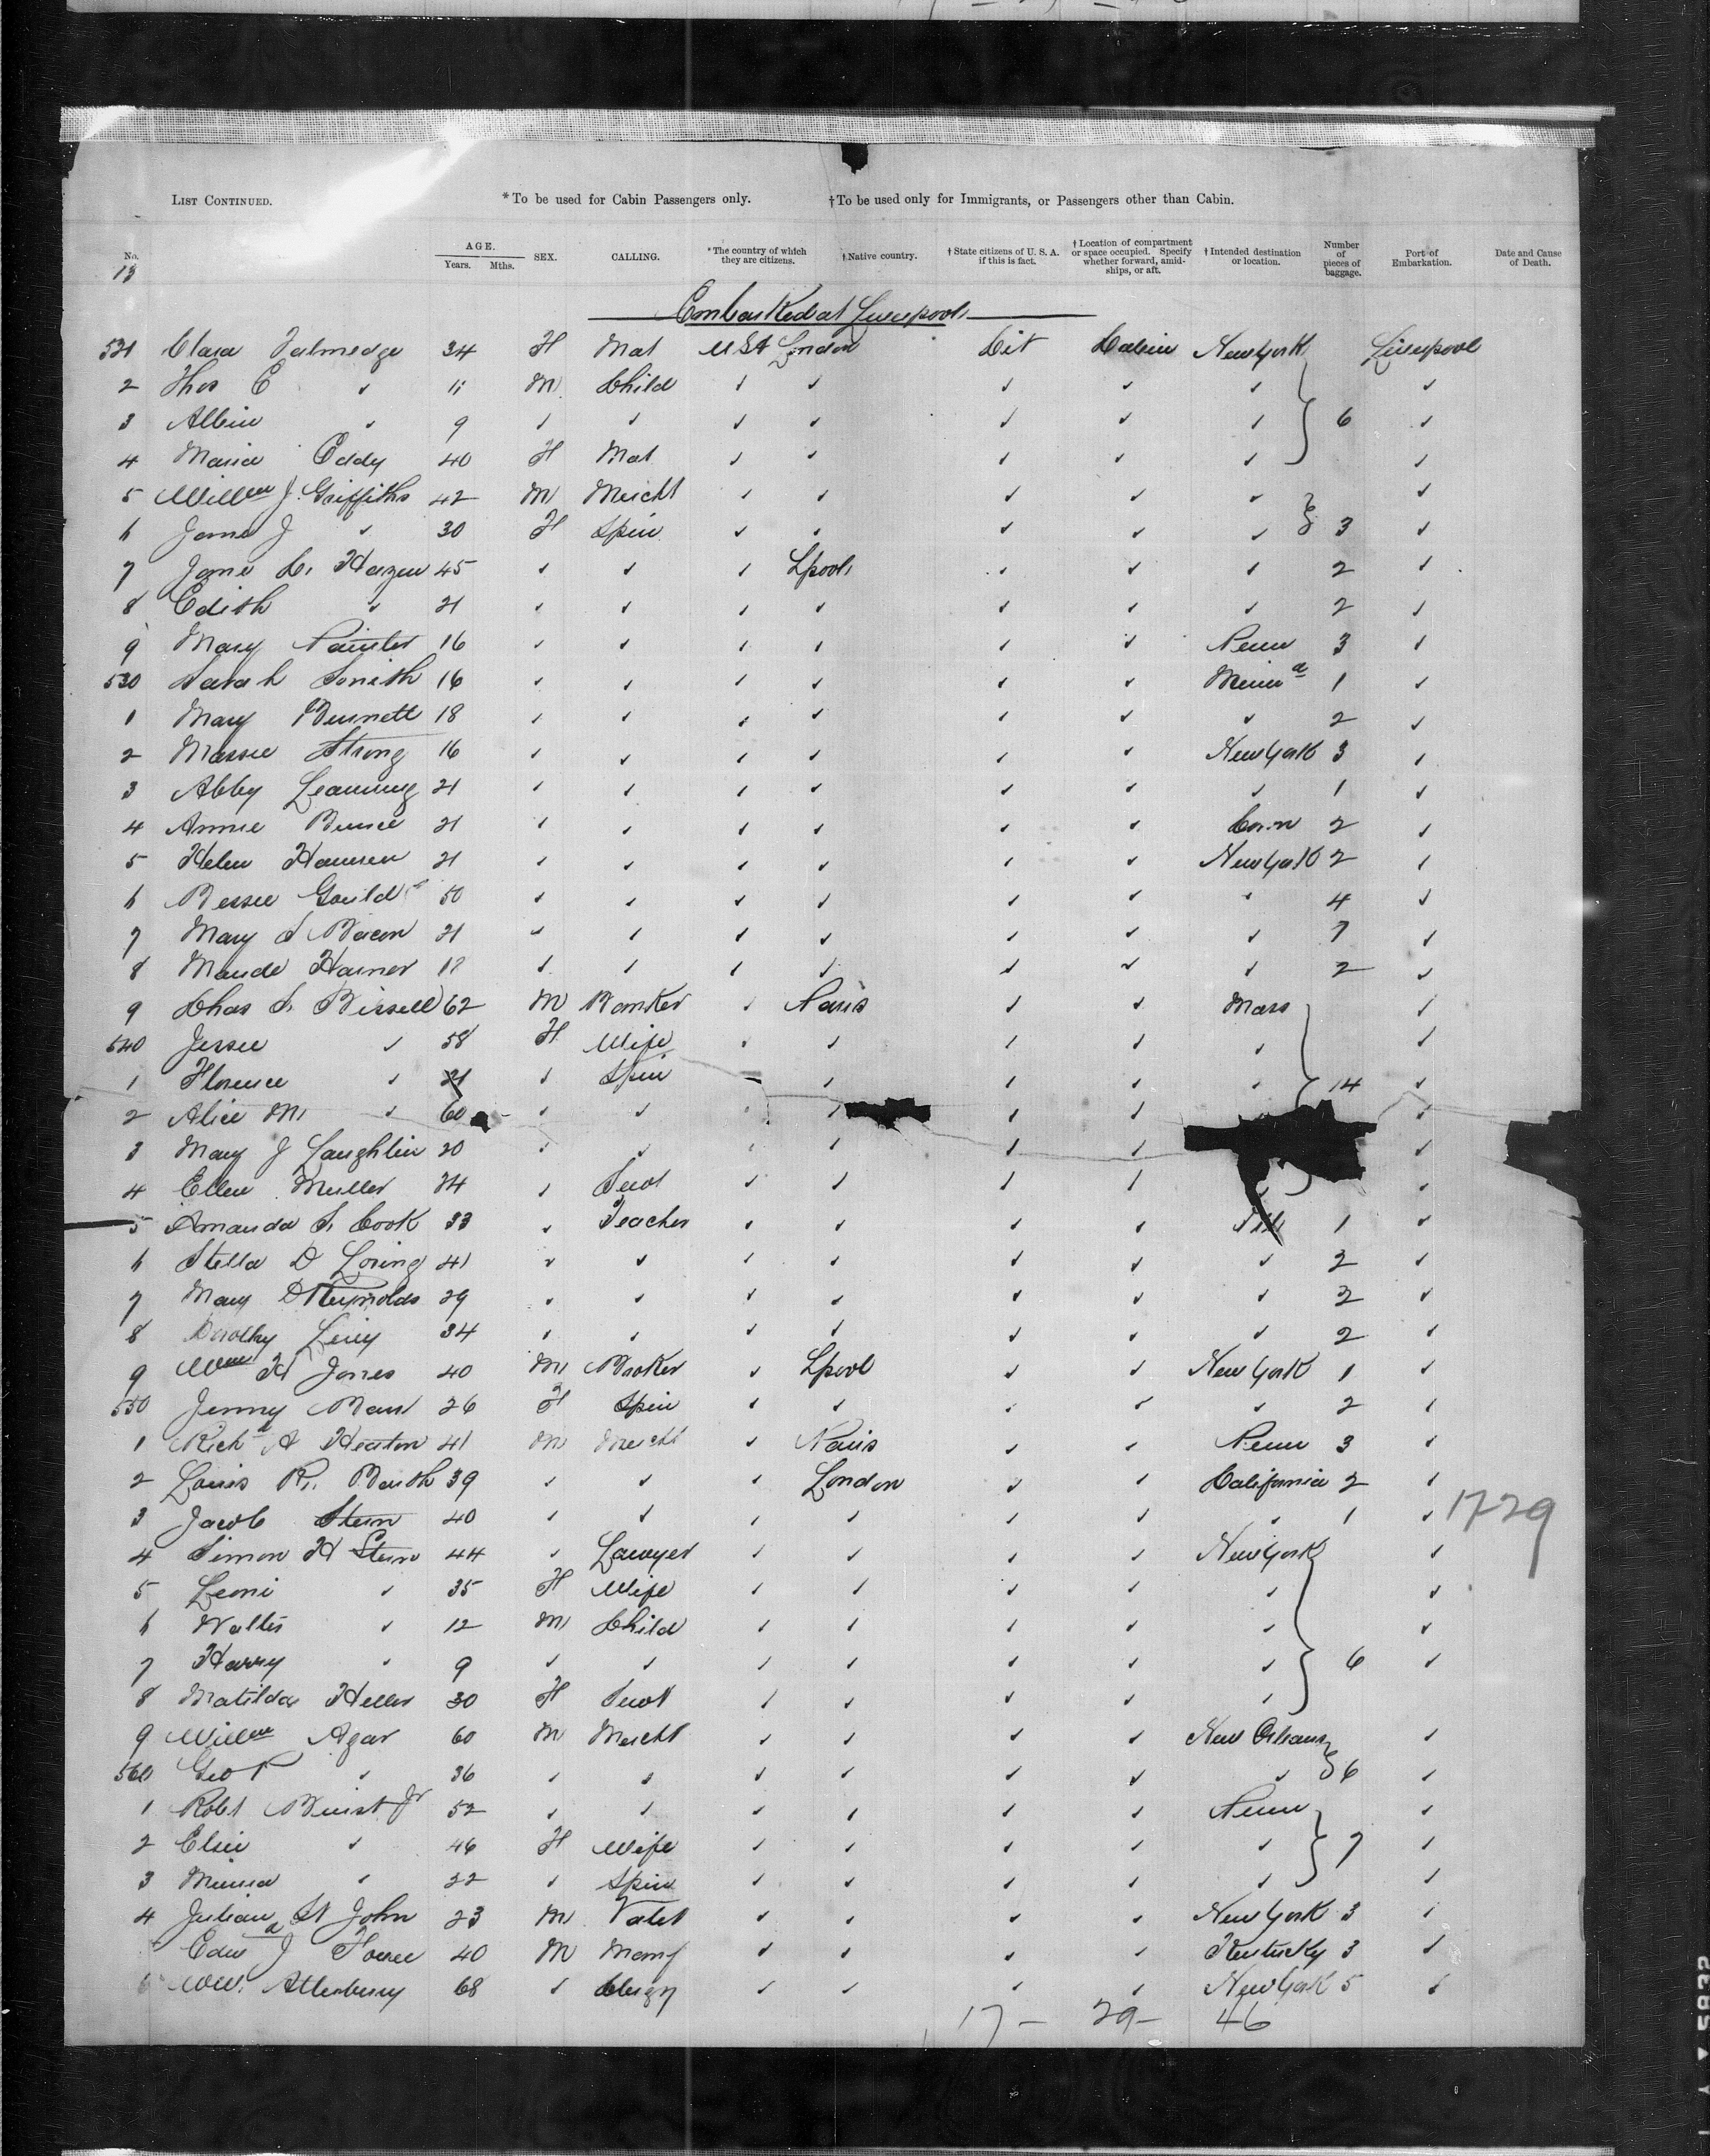 LIST CONTINUED. *To be used for Cabin Passengers only. †To be used only for Immigrants, or Passengers other than Cabin.
No. AGE. Years. Mths. SEX. CALLING. *The country of which they are citizens. †Native country. †State citizens of U. S. A. if this is fact. †Location of compartment or space occupied. Specify whether forward, amidships, or aft. †Intended destination or location. Number of pieces of baggage. Port of Embarkation. Date and Cause of Death.
13
Embarked at Liverpool
521 Clara Talmedge 34 F Mat USA London Cit Cabin New York Liverpool
2 Thos E " 11 M Child " " " " " "
3 Albin " 9 " " " " " " " 6 "
4 Maria Eddy 40 F Mat " " " " " "
5 Willm J. Griffiths 42 M Mercht " " " " " "
6 Jane J " 30 F Spin " " " " " 3 "
7 Jane C. Hazen 45 " " " Lpool " " " 2 "
8 Edith " 21 " " " " " " " 2 "
9 Mary Painter 16 " " " " " " Penn 3 "
530 Sarah Smith 16 " " " " " " Minna 1 "
1 Mary Bennett 18 " " " " " " " 2 "
2 Massie Strong 16 " " " " " " New York 3 "
3 Abby Leaming 21 " " " " " " " 1 "
4 Annie Bunce 21 " " " " " " Conn 2 "
5 Helen Hansen 21 " " " " " " New York 2 "
6 Bessie Gould 50 " " " " " " " 4 "
7 Mary S Bacon 21 " " " " " " " 7 "
8 Maude Harner " " " " " " " 2 "
9 Chas S. Bissell 62 M Banker " Paris " " Mass "
540 Jessie " 58 F Wife " " " " " "
1 Florence " 21 " Spin " " " " 14 "
2 Alice M. " 60 " " " " " " "
3 Mary J Laughlin 20 " " " " " " "
4 Ellen Muller 24 " Servt " " " " "
5 Amanda S. Cook 33 " Teacher " " " " Ill 1 "
6 Stella D Loring 41 " " " " " " " 2 "
7 Mary D Reynolds 29 " " " " " " " 2 "
8 Dorothy 34 " " " " " " " 2 "
9 Wm H Jones 40 M Broker " Lpool " " New York 1 "
550 Jenny 26 F Spin " " " " " 2 "
1 Richd A Heaton 41 M Mercht " Paris " " Penn 3 "
2 Louis R. 39 " " " London " " California 2 "
3 Jacob Stern 40 " " " " " " " 1 " 1729
4 Simon H Stern 44 " Lawyer " " " " New York "
5 Leoni " 35 F Wife " " " " " "
6 Walter " 12 M Child " " " " " "
7 Harry " 9 " " " " " " " 6 "
8 Matilda Heller 30 F Servt " " " " "
9 Willm Agar 60 M Mercht " " " " New Orleans "
560 Geo " 36 " " " " " " " 6 "
1 Robt Buist Jr 52 " " " " " " Penn "
2 Elsie " 46 F Wife " " " " " 7 "
3 Minna " 22 " Spin " " " " " "
4 Julian St John 23 M Valet " " " " New York 3 "
Edwd J 40 M Manf " " " " Kentucky 3 "
6 WW. Atterbury 68 " Clergy " " " " New York 5 "
17 — 29 — 46